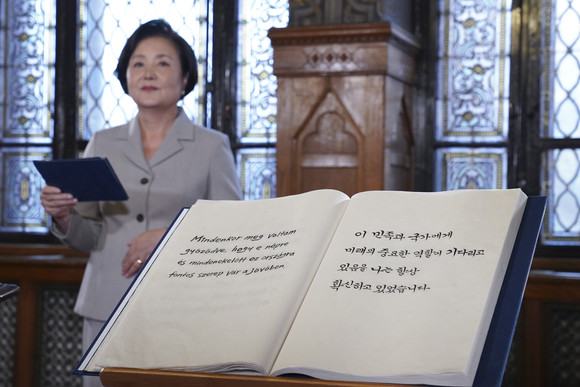 Mindenkor meg voltam
győződve, hogy e népre
és mindenekelőtt ez országra
fontos szerep vár a jövőben.
이 민족과 국가에게
미래의 중요한 역할이 기다리고
있음을 나는 항상
확신하고 있었습니다.